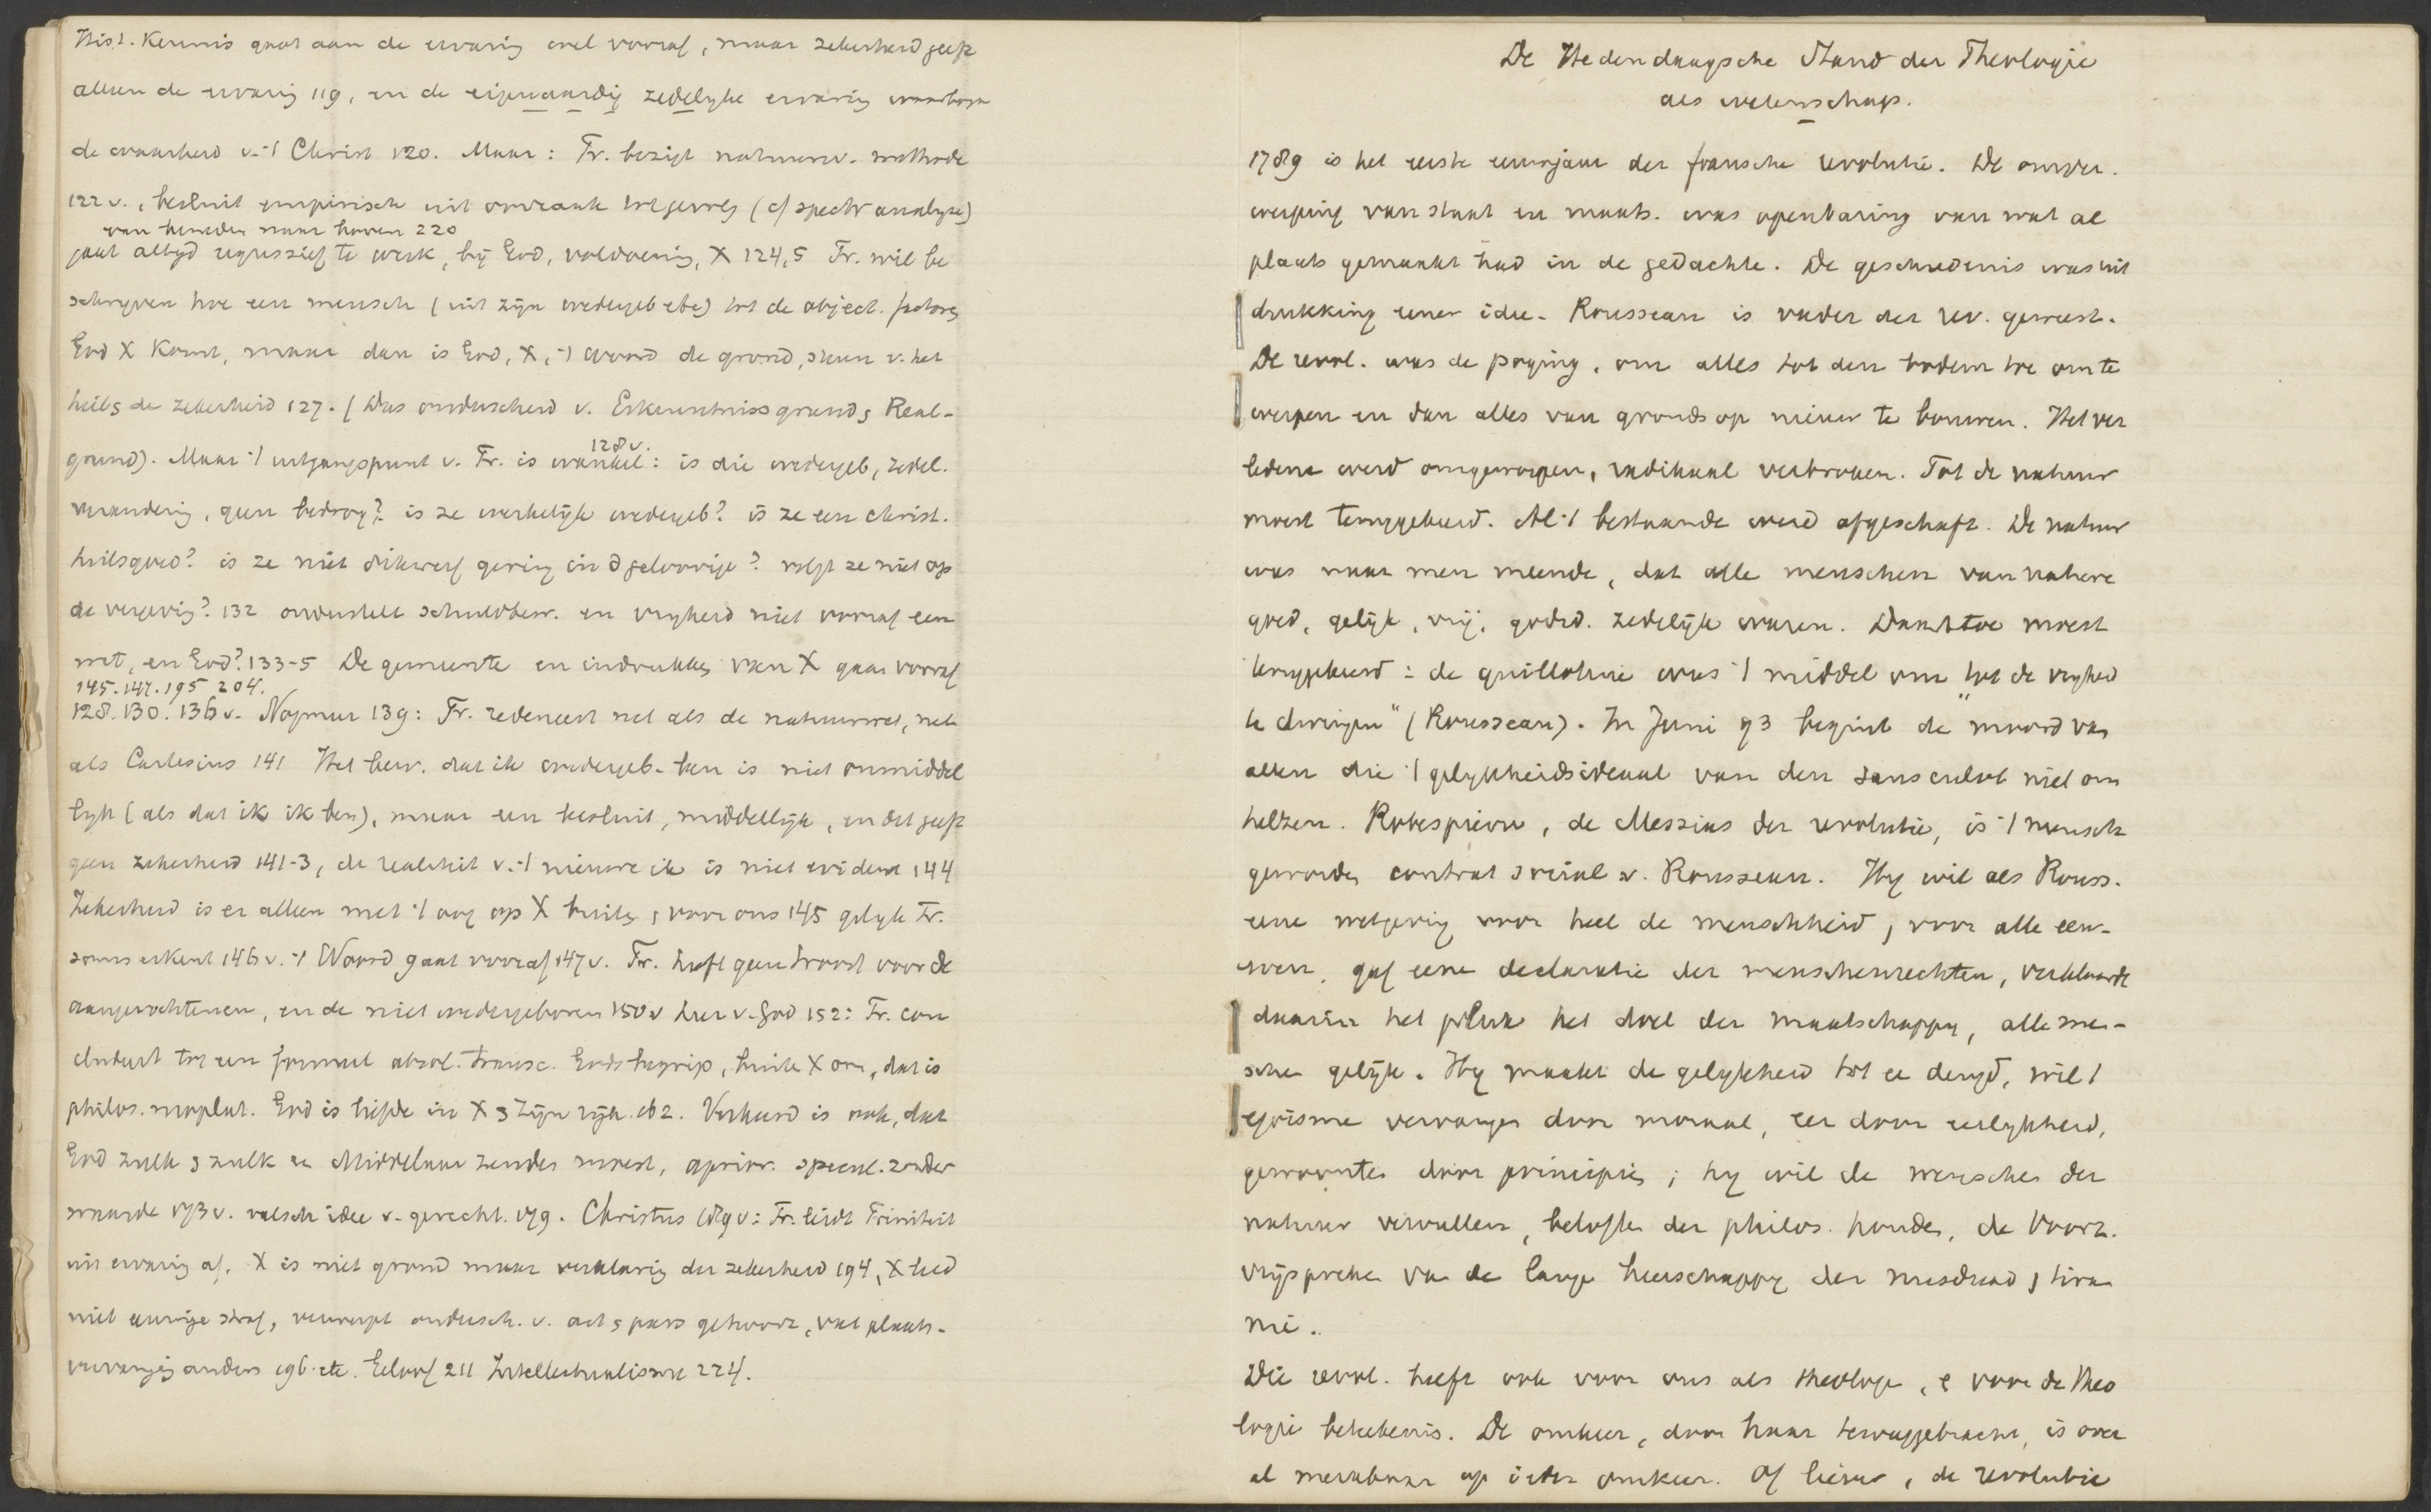 Hist. Kennis gaat aan de ervaring wel vooraf, maar zekerheid geeft
alleen de ervaring 119, en de eigenaardig zedelyke ervaring waarborgt
de waarheid v. 't Christ 120. Maar: Fr. bezigt natuurw. methode
122 v., besluit empirisch uit oorzaak tot gevolg (cf spectr analyse)
van beneden naar boven 220
gaat altyd regressief te werk, by God, voldoening, X 124,5 Fr. wil be
schryven hoe een mensch (uit zyn wedergeb etc) tot de object. factoren
God X komt, maar dan is God, X, 't woord de grond, steun v. het
heil, de zekerheid 127. (Das onderscheid v. Erkenntnissgrund, Real-
grund). Maar 't uitgangspunt v. Fr. is wankel: is die wedergeb, zedel.
128 v.
verandering, geen bedrog? is ze werkelyk wedergeb? is ze een christ.
heilsgoed? is ze niet dikwerf gering in d geloovige? volgt ze niet op
de vergeving? 132 onderstelt schuldbew. en vryheid niet vooraf een
wet, en God? 133-5 De gemeente en indrukken van X gaan vooraf
145. 147. 195 204.
128. 130. 136 v. Nogmaal 139: Fr. redeneert net als de natuurwet, net
als Cartesius 141 Het bew. dat ik wedergeb. ben is niet onmiddel
lyk (als dat ik ik ben), maar een besluit, middellyk, en dit geeft
geen zekerheid 141-3, de realiteit v. 't nieuwe ik is niet evident 144
Zekerheid is er alleen met 't oog op X buiten, voor ons 145 gelyk Fr.
soms erkent 146 v. 't Woord gaat vooraf 147 v. Fr. heeft geen troost voor de
aangevochtenen, en de niet wedergeboren 150 v leer v. God 152: Fr. con
cludeert tot een formeel absol. transc. Godsbegrip, buiten X om, dat is
philos. neoplat. God is liefde in X, Zyn ryk. 162. Verkeerd is ook, dat
God zulk, zulk een Middelaar zenden moest, aprior. specul. zonder
waarde 173 v. valsch idee v. gerecht. 179. Christus 189 v: Fr. leidt Triniteit
uit ervaring af. X is niet grond maar verklaring der zekerheid 194, X leed
niet eeuwige straf, verwerpt ondersch. v. act, pass gehoorz, vat plaats-
vervanging anders 196 etc. Geloof 211 Intellectualisme 224.
De Hedendaagsche Stand der Theologie
als wetenschap.
1789 is het eerste eeuwjaar der fransche revolutie. De omver.
werping van staat en maats. was openbaring van wat al
plaats gemaakt had in de gedachte. De geschiedenis was uit
drukking eener idee. Rousseau is vader der rev. geweest.
De revol. was de poging, om alles tot den bodem toe om te
werpen en dan alles van grondsop nieuw te bouwen. Het ver
ledene werd omgeworpen, radikaal verbroken. Tot de natuur
moest teruggekeerd. Al 't bestaande werd afgeschaft. De natuur
was naar men meende, dat alle menschen van nature
goed, gelyk, vrij, godsd. zedelyk waren. Daartoe moest
teruggekeerd: de guillotine was 't middel om "tot de vryheid
te dwingen" (Rousseau). In Juni 93 begint de moord van
allen die 't gelykheidsideaal van den sansculot niet om
helzen. Robespierre, de Messias der revolutie, is 't mensch
geworden contrat social v. Rousseau. Hy wil als Rouss.
eene wetgeving voor heel de menschheid, voor alle eeu-
wen, gaf eene declaratie der menschenrechten, verklaarde
daarin het geluk het doel der maatschappy, alle men-
schen gelyk. Hy maakt de gelykheid tot een deugd, wil 't
egoisme vervangen door moraal, eer door eerlykheid,
gewoonten door principes; hy wil de wenschen der
natuur vervullen, beloften der philos. houden, de Voorz.
vrijspreken van de lange heerschappy der misdaad, tiran
nie.
Die revol. heeft ook voor ons als theologe, e voor de theo
logie beteekenis. De omkeer, door haar teruggebracht, is over
al merkbaar op ieder omkeer. Of liever, de revolutie